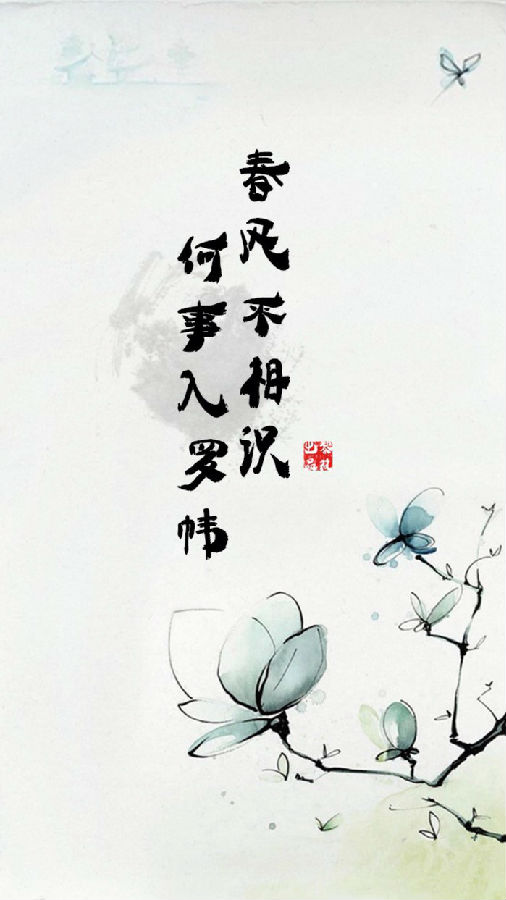 春风不相识
何事入罗帏